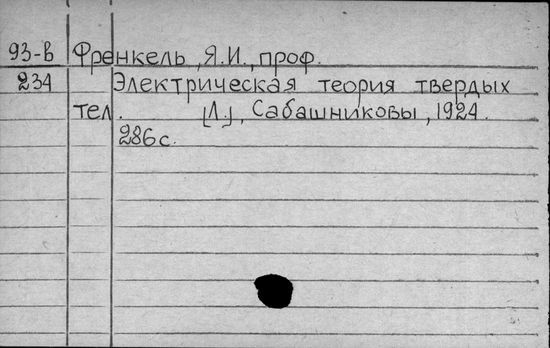 93-в Френкель, Я.И., проф.
234 Электрическая теория твердых
тел. [Л.], Сабашниковы, 1924.
286 с.